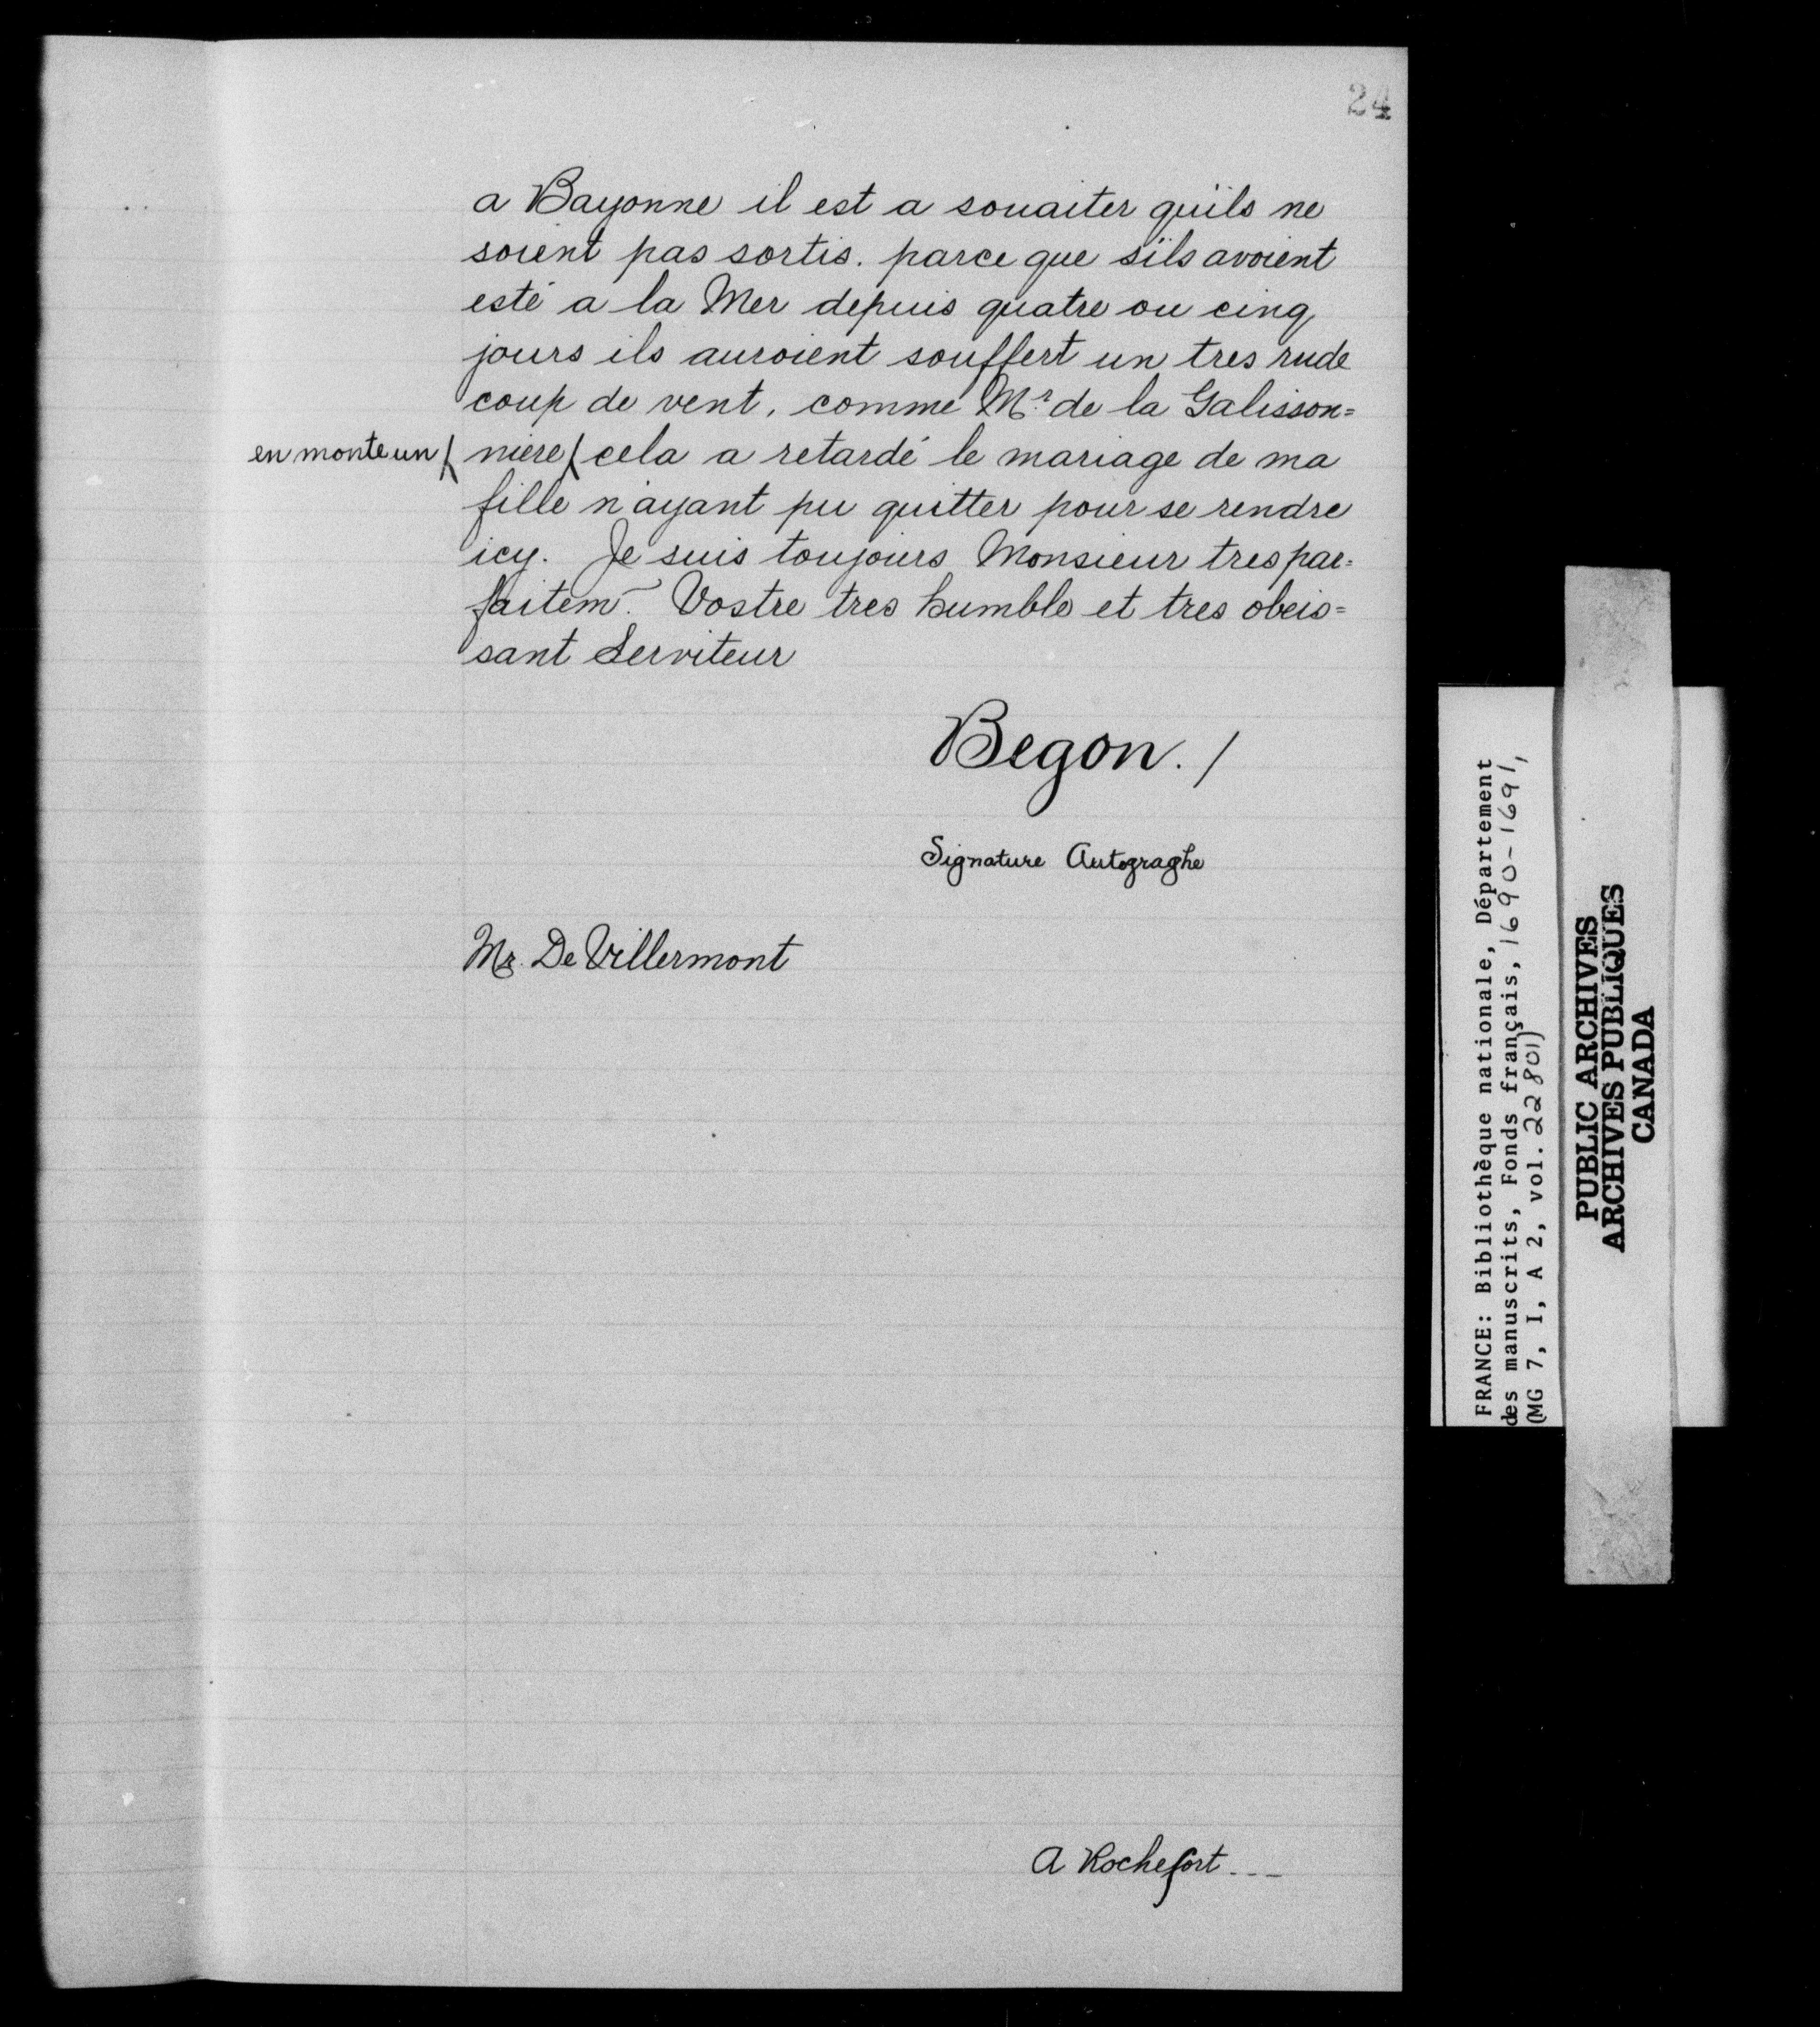 24
a Bayonne il est a souaiter qu'ils ne
soient pas sortis. parce que s'ils avoient
esté a la Mer depuis quatre ou cinq
jours ils auroient souffert un tres rude
coup de vent, comme Mr. de la Galisson=
en monte un / niere / cela a retardé le mariage de ma
fille n'ayant pu quitter pour se rendre
icy. Je suis toujours Monsieur tres par=
faitem. Vostre tres humble et tres obeis=
sant Serviteur
Begon. /
Signature Autographe
Mr. De Villermont
A Rochefort - - -
FRANCE: Bibliothèque nationale, Département
des manuscrits, Fonds français, 1690-1691,
(MG 7, I, A 2, vol. 22801)
PUBLIC ARCHIVES
ARCHIVES PUBLIQUES
CANADA